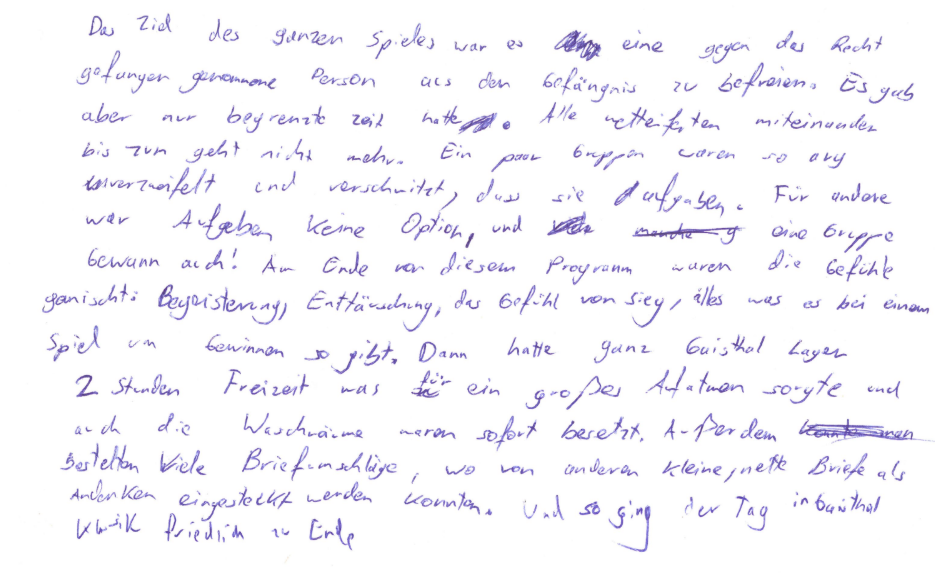 Das Ziel des ganzen Spieles war es eine gegen das Recht
gefangen genommene Person aus den Gefängnis zu befreien. Es gab
aber nur begrenzte zeit hatte. Alle wetteiferten miteinander
bis zum geht nicht mehr. Ein paar Gruppen waren so arg
verzweifelt und verschwitzt, dass sie aufgaben. Für andere
war Aufgeben keine Option, und eine Gruppe
Gewann auch! Am Ende von diesem Programm waren die Gefühle
gemischt: Begeisterung, Enttäuschung, das Gefühl von sieg, alles was es bei einem
Spiel um Gewinnen so gibt. Dann hatte ganz Guisthal Lager
2 Stunden Freizeit was für ein großes Aufatmen sorgte und
auch die Waschräume waren sofort besetzt. Außerdem
Bestellten Viele Briefumschläge, wo von anderen kleine, nette Briefe als
Andenken eingesteckt werden konnten. Und so ging der Tag in Guisthal
friedlich zu Ende